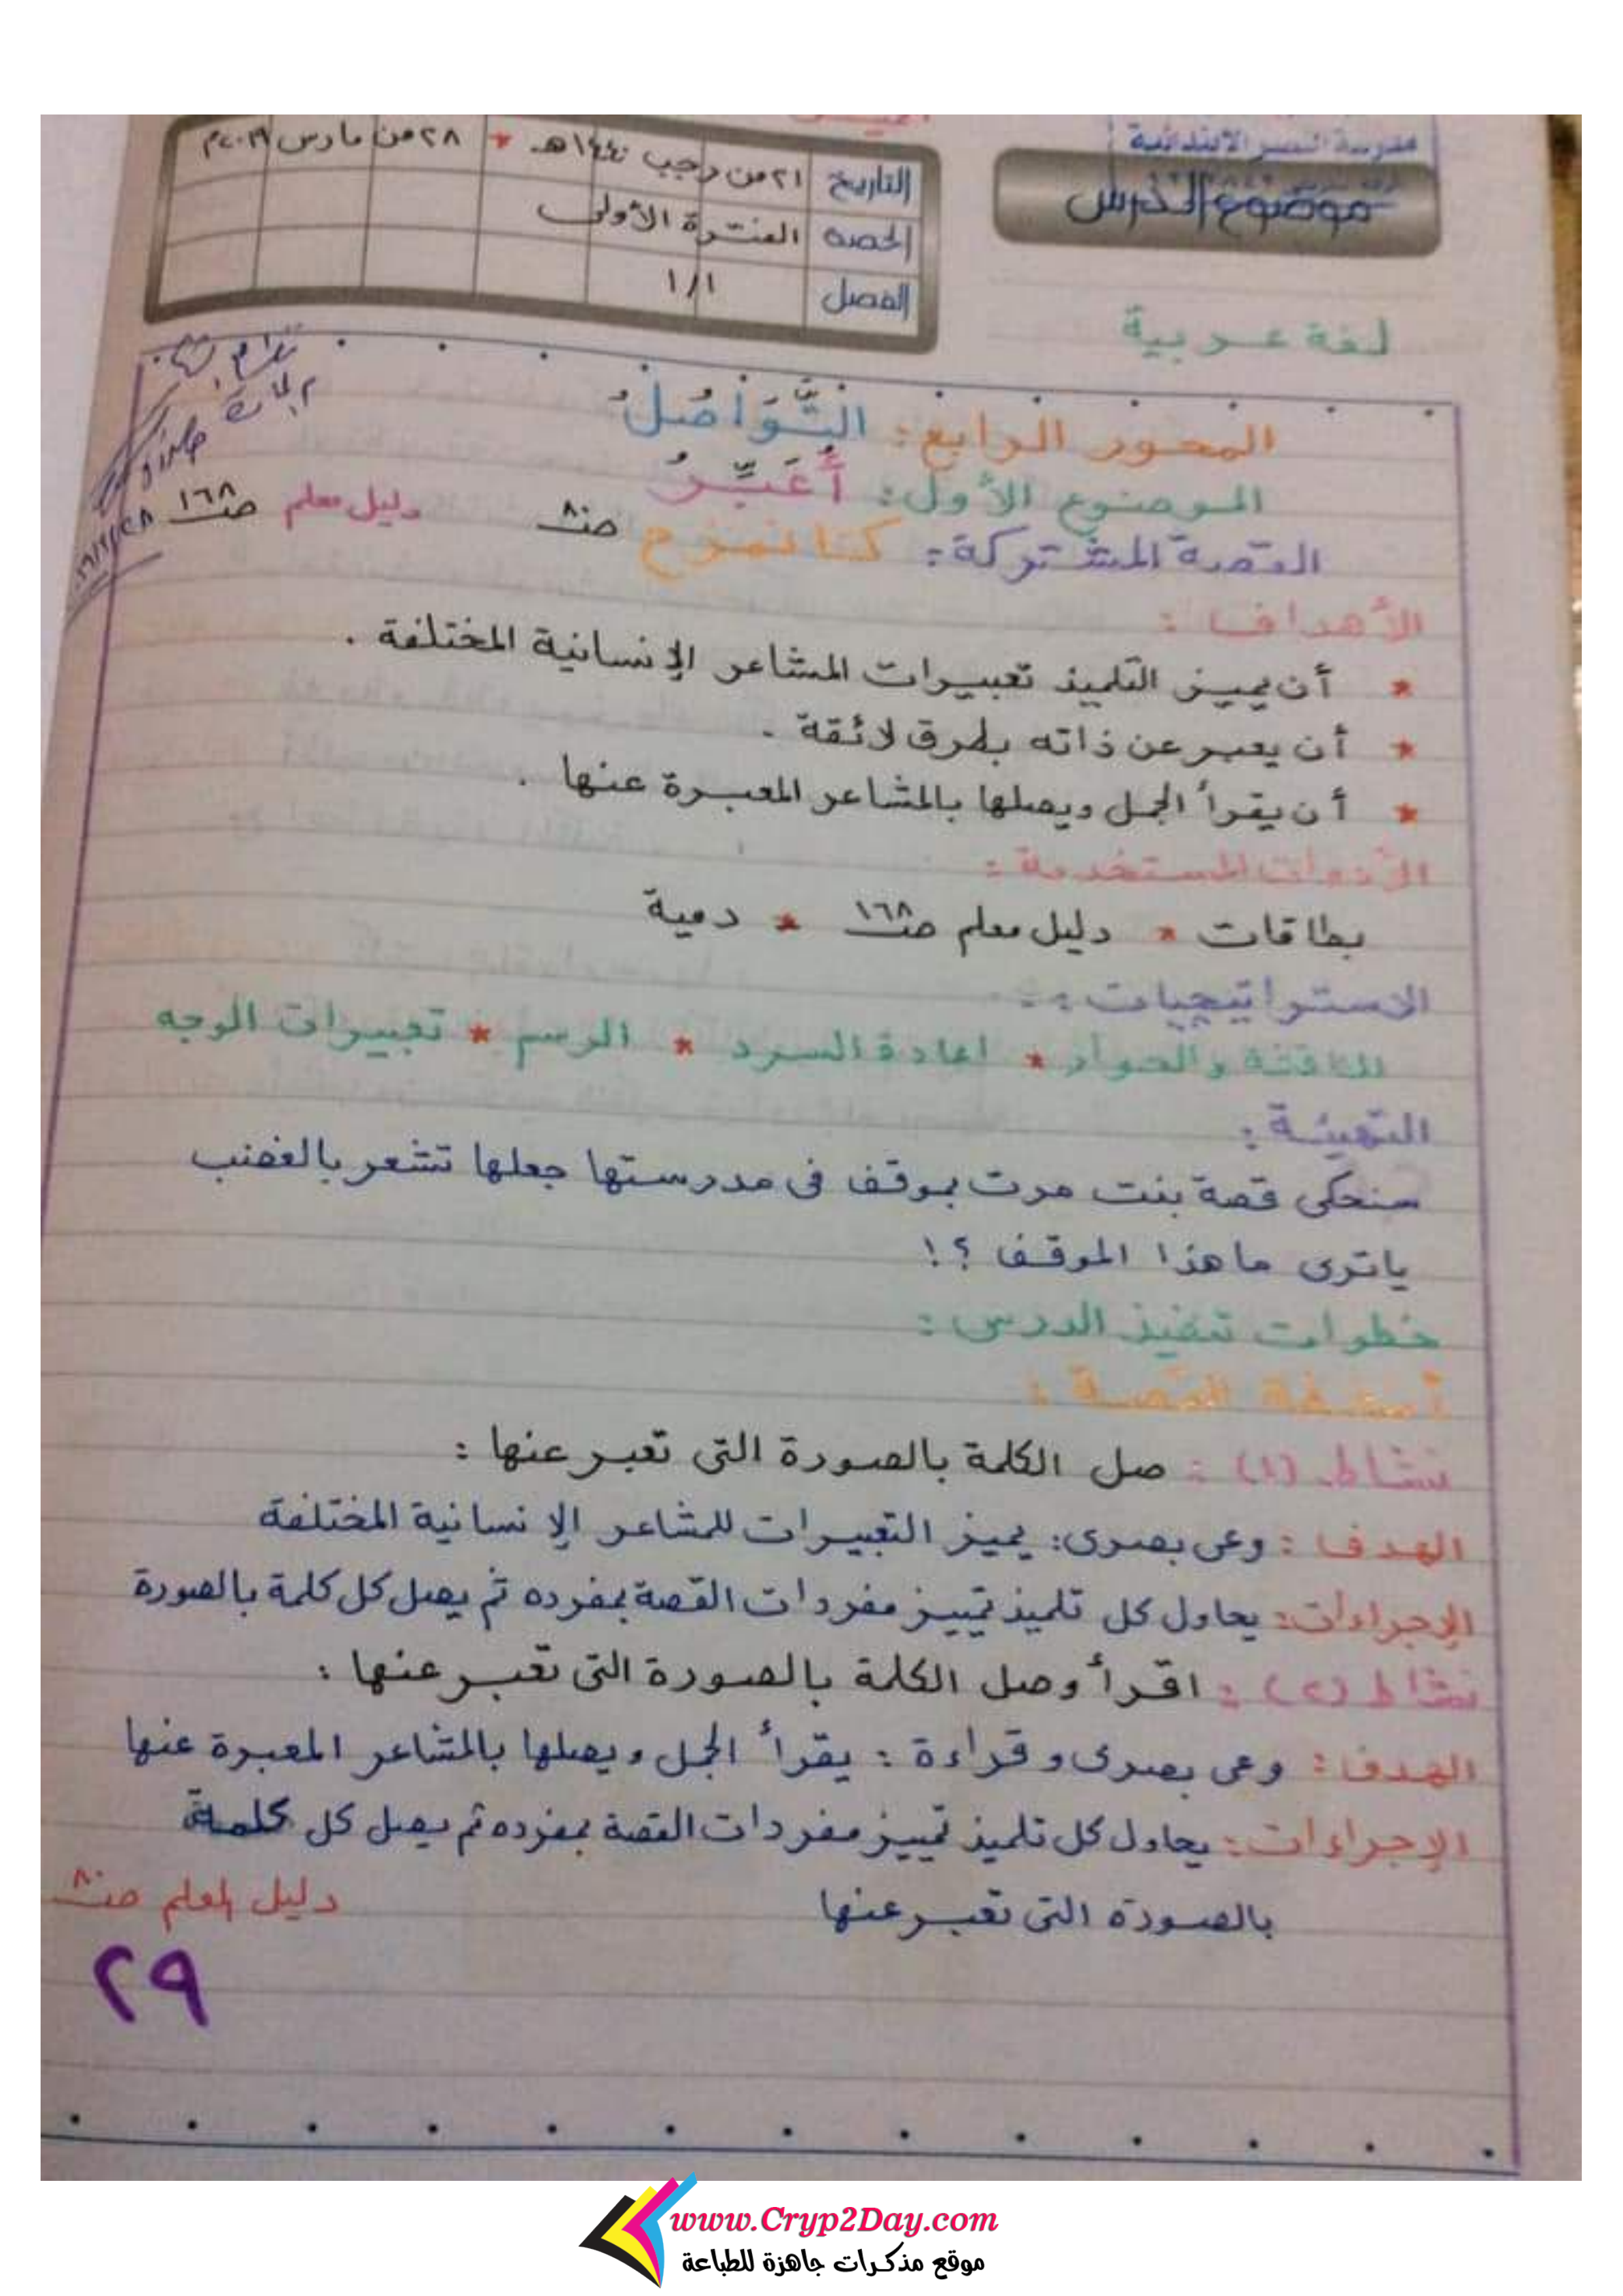 مدرسة النصر الابتدائية
موضوع الدرس
التاريخ ٢١ من رجب ١٤٤٠هـ * ٢٨ من مارس ٢٠١٩م
الحصة الفترة الأولى
الفصل ١/١
لغة عربية
المحور الرابع: التَّوَاصُلُ
الموضوع الأول: أُعَبِّرُ
القصة المشتركة: كنا نمزح صـ٨٠ دليل معلم صـ١٦٨
الأهداف:
* أن يميز التلميذ تعبيرات المشاعر الإنسانية المختلفة .
* أن يعبر عن ذاته بطرق لائقة .
* أن يقرأ الجمل ويصلها بالمشاعر المعبرة عنها .
الأدوات المستخدمة:
بطاقات * دليل معلم صـ١٦٨ * دمية
الاستراتيجيات:
المناقشة والحوار * اعادة السرد * الرسم * تعبيرات الوجه
التهيئة:
سنحكى قصة بنت مرت بموقف فى مدرستها جعلها تشعر بالغضب
ياترى ماهذا الموقف ؟!
خطوات تنفيذ الدرس:
أنشطة القصة:
نشاط (١): صل الكلمة بالصورة التى تعبر عنها:
الهدف: وعى بصرى: يميز التعبيرات للمشاعر الإنسانية المختلفة
الإجراءات: يحاول كل تلميذ تمييز مفردات القصة بمفرده ثم يصل كل كلمة بالصورة
نشاط (٢): اقرأ وصل الكلمة بالصورة التى تعبر عنها:
الهدف: وعى بصرى وقراءة: يقرأ الجمل ويصلها بالمشاعر المعبرة عنها
الإجراءات: يحاول كل تلميذ تمييز مفردات القصة بمفرده ثم يصل كل كلمة
بالصورة التى تعبر عنها
دليل المعلم صـ٨٠
٢٩
www.Cryp2Day.com
موقع مذكرات جاهزة للطباعة